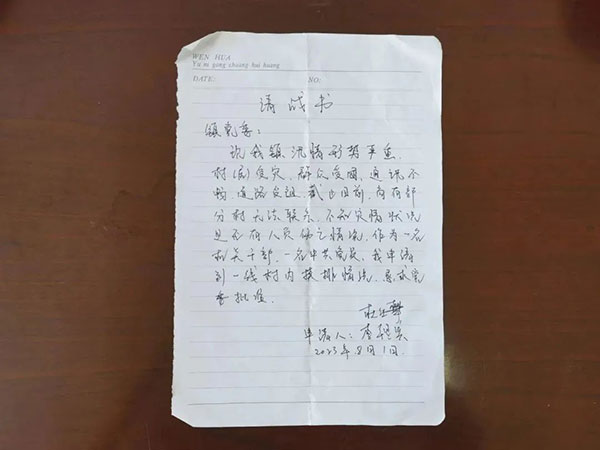 WEN HUA
Yu ni gong chuang hui huang
DATE:
NO:
请战书
镇党委:
现我镇汛情形势严重,
村(居)受灾,群众受困,通讯不
畅,道路交阻,截止目前,尚有部
分村无法联系,不知灾情状况
是否有人员伤亡情况,作为一名
机关干部,一名中共党员,我申请
到一线村内摸排情况,恳求党
委批准.
申请人:
2023年8月1日.